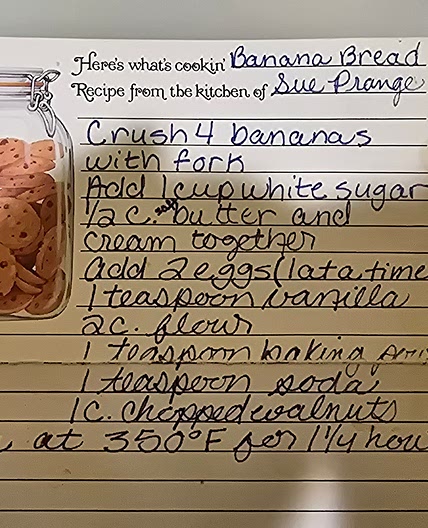 Here's what's cookin' Banana Bread
Recipe from the kitchen of Sue Prange
Crush 4 bananas
with fork
Add 1 cup white sugar
1/2 c. butter and
cream together
add 2 eggs (1 at a time
1 teaspoon vanilla
2 c. flour
1 teaspoon baking
1 teaspoon soda
1 c. chopped walnuts
at 350°F for 1 1/4 hou